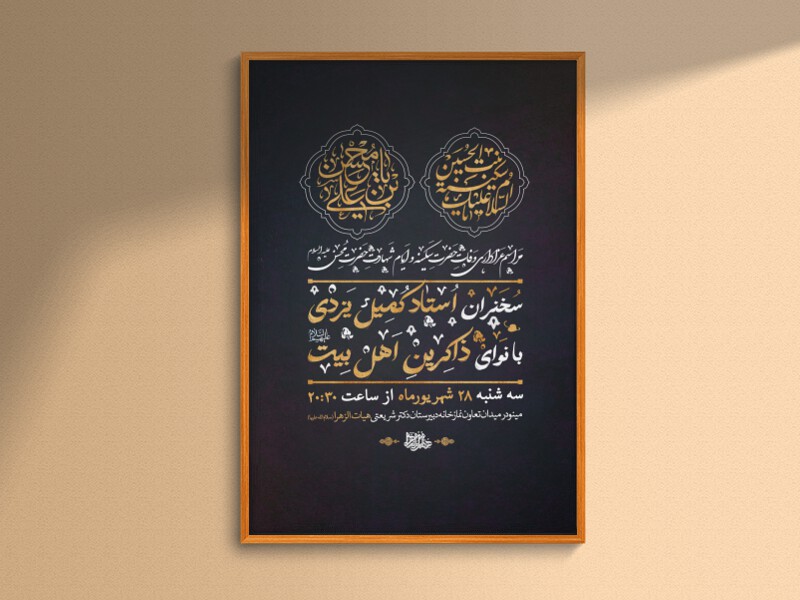 بنت الحسین سکینة السلام علیک
یا محسن بن علی
مراسم عزاداری وفات حضرت سکینه و ایام شهادت حضرت محسن علیه السلام
سخنران استاد کمیل یزدی
با نوای ذاکرین اهل بیت علیهم السلام
سه شنبه ۲۸ شهریورماه از ساعت ۲۰:۳۰
مینودر میدان تعاون نمازخانه دبیرستان دکتر شریعتی هیات الزهرا